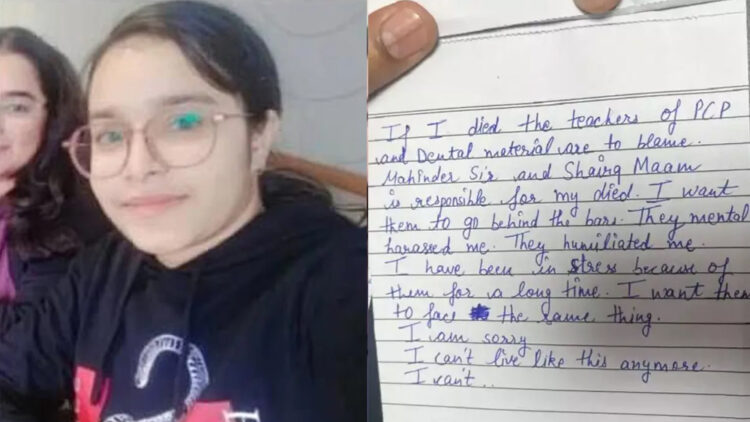 If I died the teachers of PCP
and Dental material are to blame.
Mahinder Sir and Shairq Maam
is responsible for my died. I want
them to go behind the bars. They mental
harassed me. They humiliated me.
I have been in stress because of
them for a long time. I want them
to face the same thing.
I am sorry
I can't live like this anymore.
I can't..